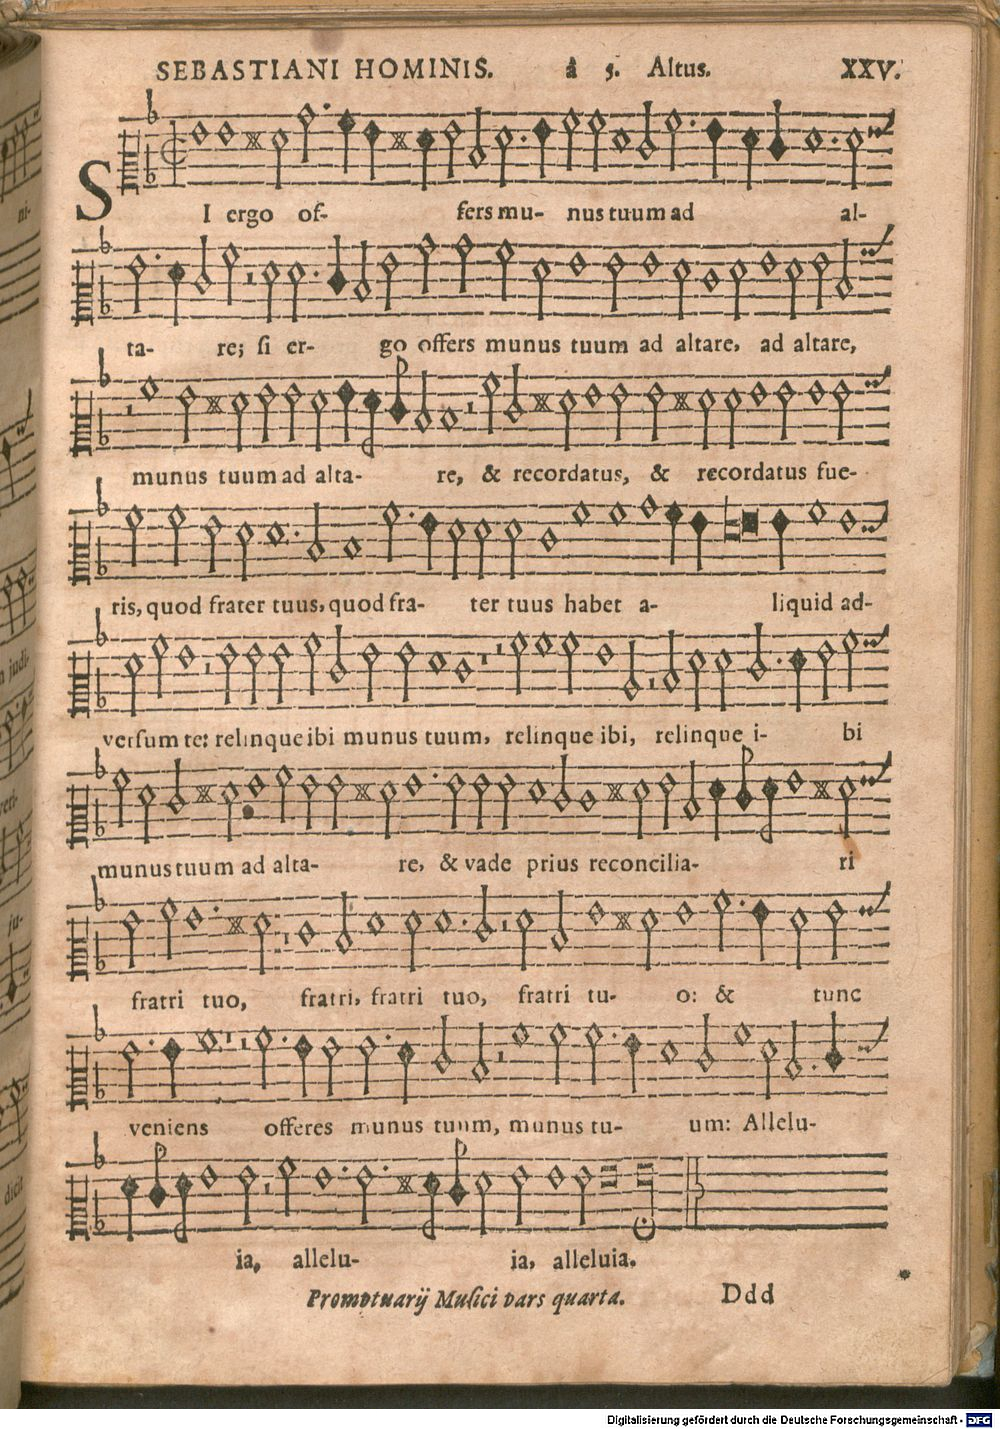 SEBASTIANI HOMINIS. á 5. Altus. XXV.
SI ergo of- fers mu- nus tuum ad al-
ta- re; si er- go offers munus tuum ad altare, ad altare,
munus tuum ad alta- re, & recordatus, & recordatus fue-
ris, quod frater tuus, quod fra- ter tuus habet a- liquid ad-
versum te: relinque ibi munus tuum, relinque ibi, relinque i- bi
munus tuum ad alta- re, & vade prius reconcilia- ri
fratri tuo, fratri, fratri tuo, fratri tu- o: & tunc
veniens offeres munus tuum, munus tu- um: Allelu-
ia, allelu- ia, alleluia.
Promptuarij Musici pars quarta. Ddd
ni-
n judi-
ju-
dicit
Digitalisierung gefördert durch die Deutsche Forschungsgemeinschaft - DFG